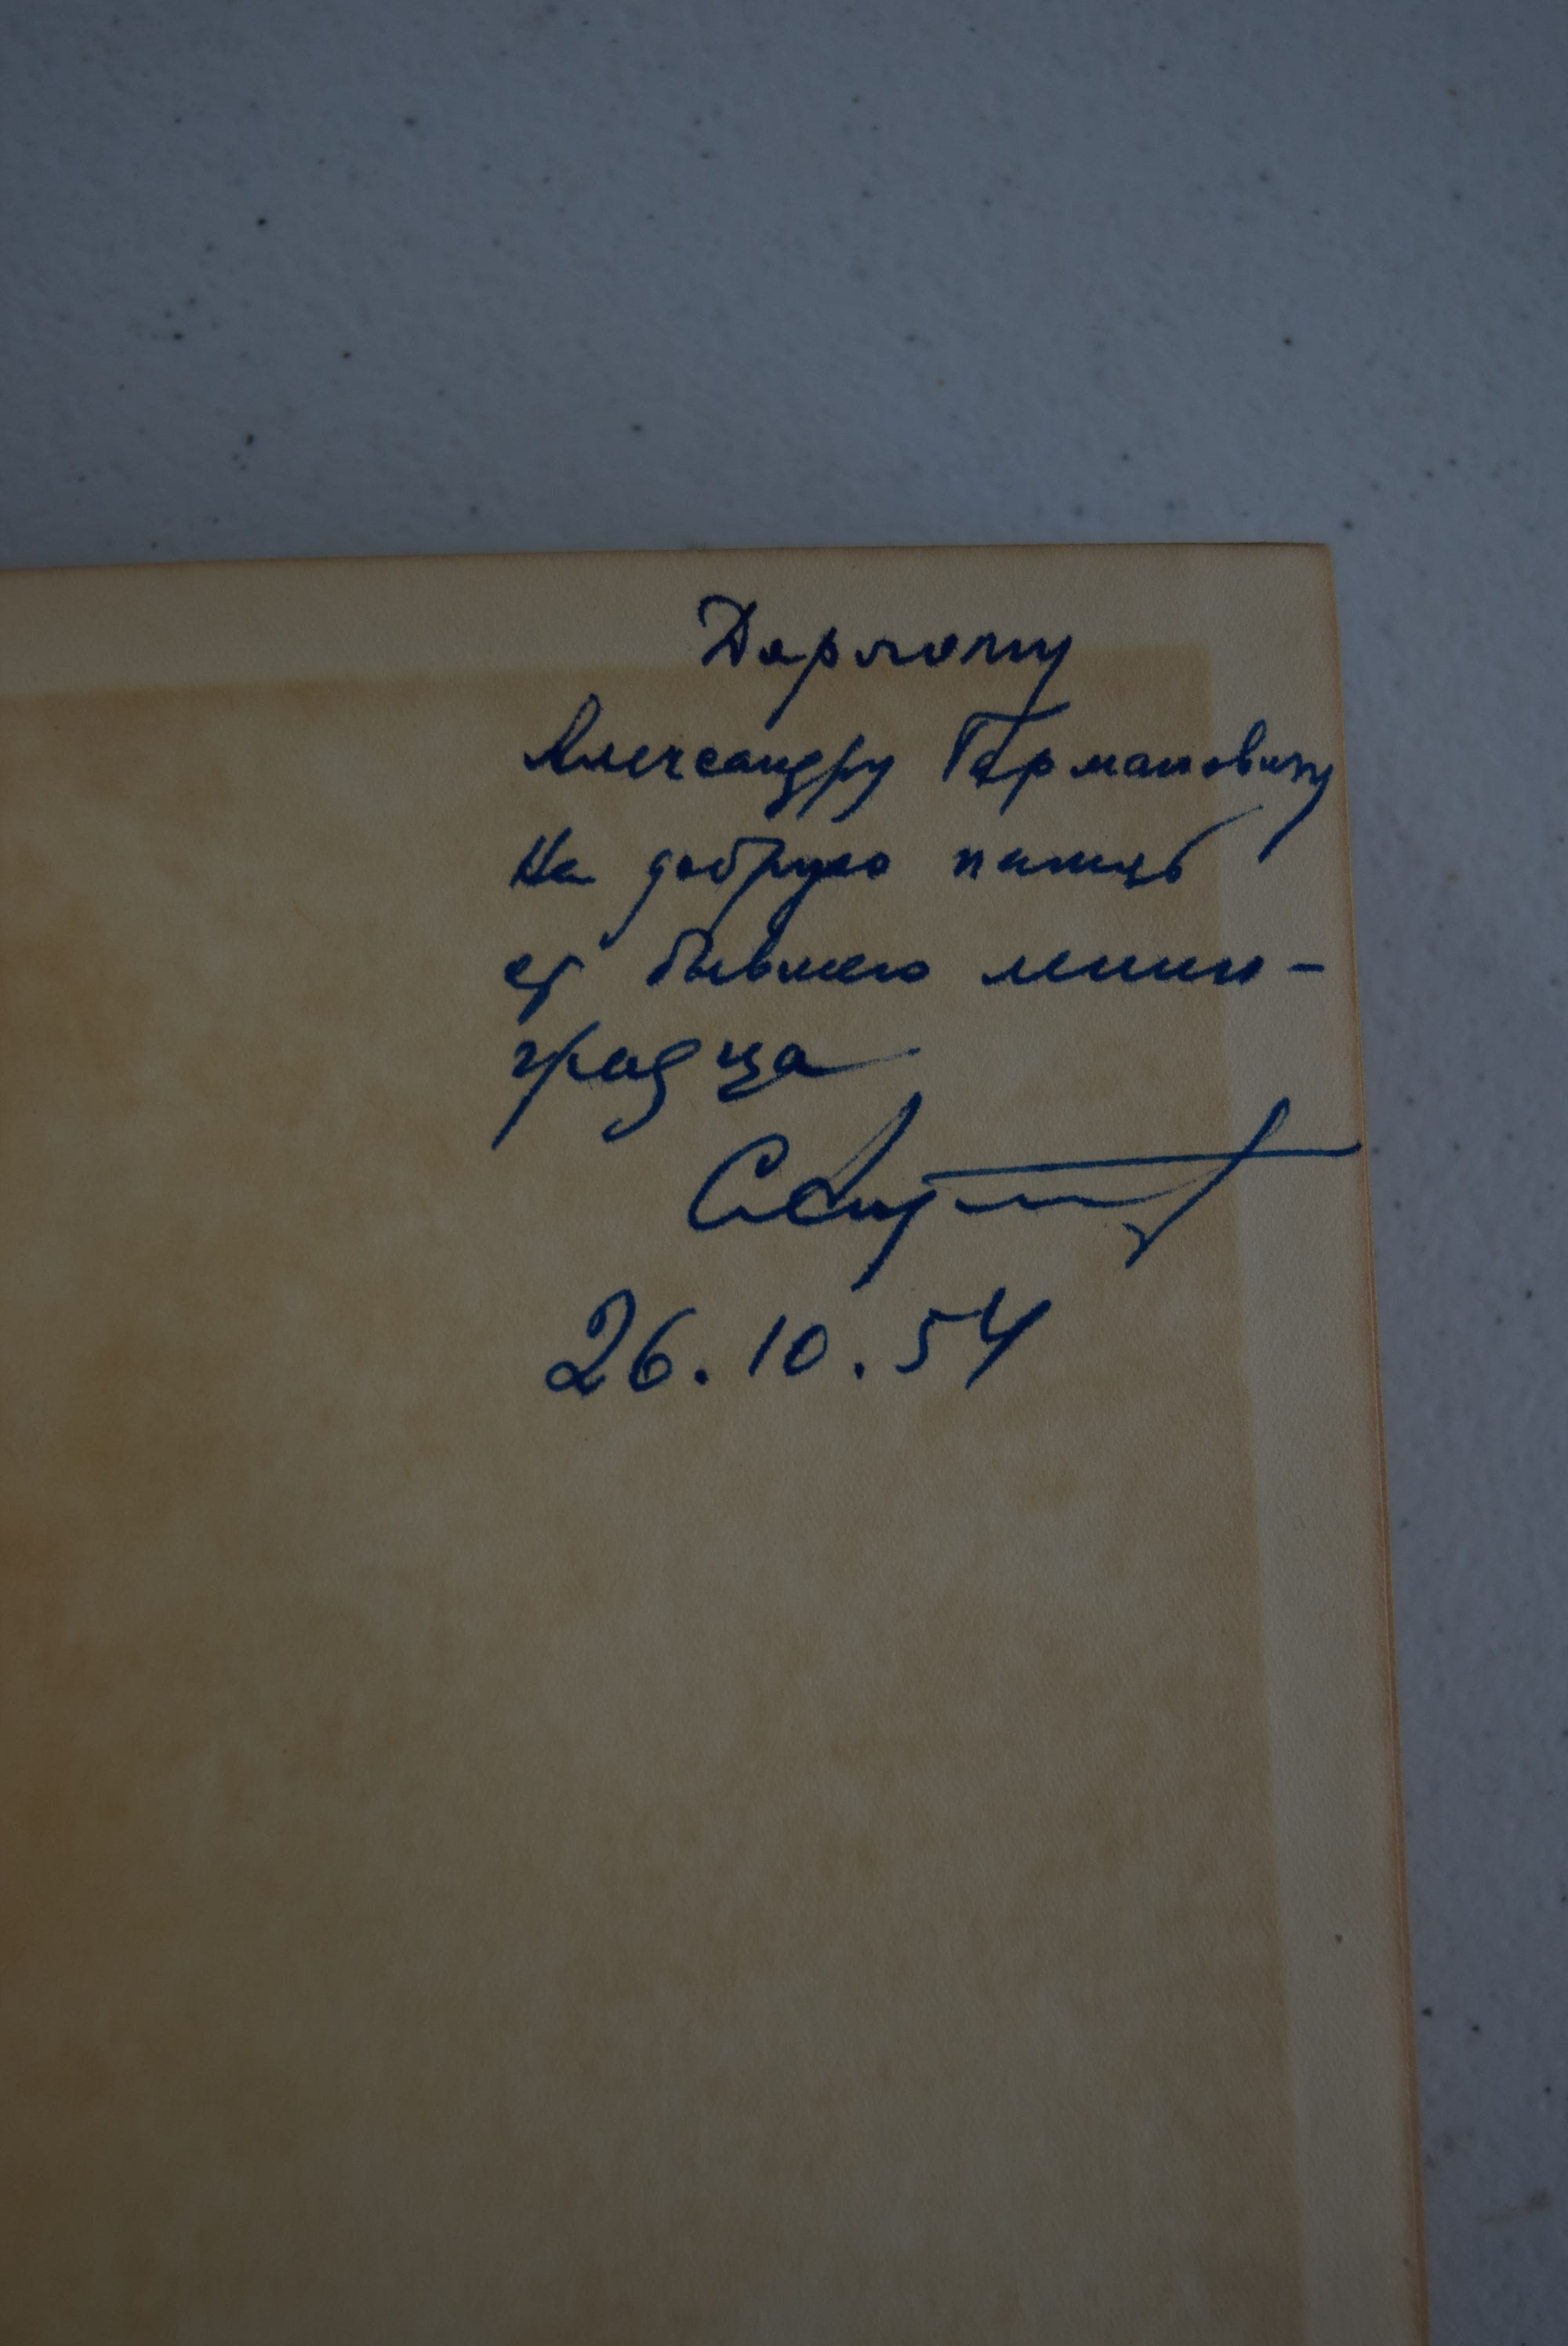 Дорогому
Александру Германовичу
На добрую память
от бывшего ленин-
градца
26.10.54